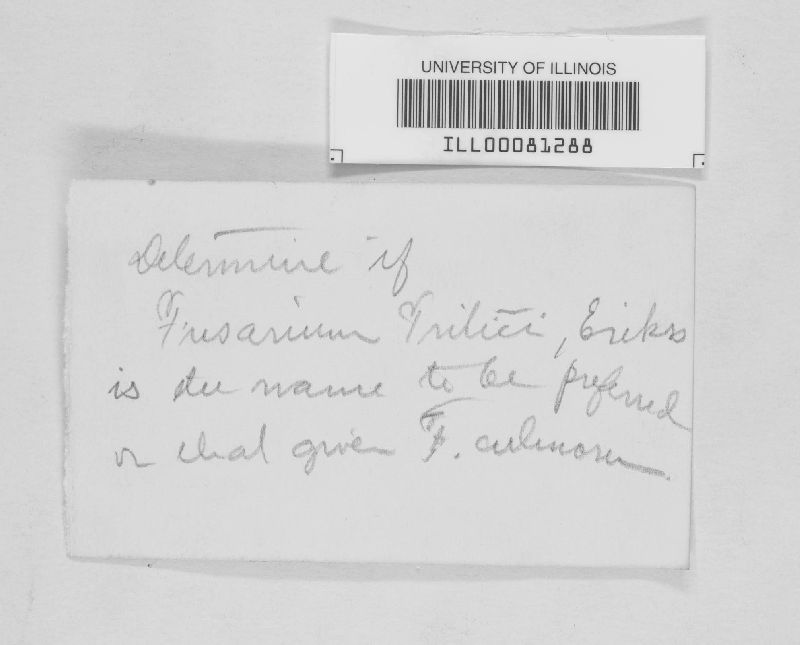 UNIVERSITY OF ILLINOIS
ILL00081288
Determine if
Fusarium Tritici, Erikss
is the name to be preferred
or that given F. culmorum.